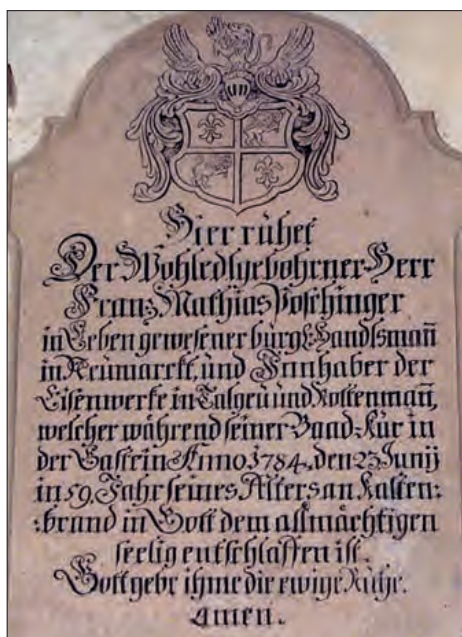 Hier ruhet
Der Wohledlgebohrner Herr
Franz Mathias Poschinger
in Leben gewesener bürgl: Handlsmañ
in Neumarckt, und Innhaber der
Eisenwerke in Talgeu und Rottenmañ,
welcher während seiner Baad-Kur in
der Gastein Anno 1784, den 23 Junij
in 59. Jahr seines Alters an Kalten:
:brand in Gott dem allmächtigen
seelig entschlaffen ist.
Gott gebe ihme die ewige Ruhe.
Amen.